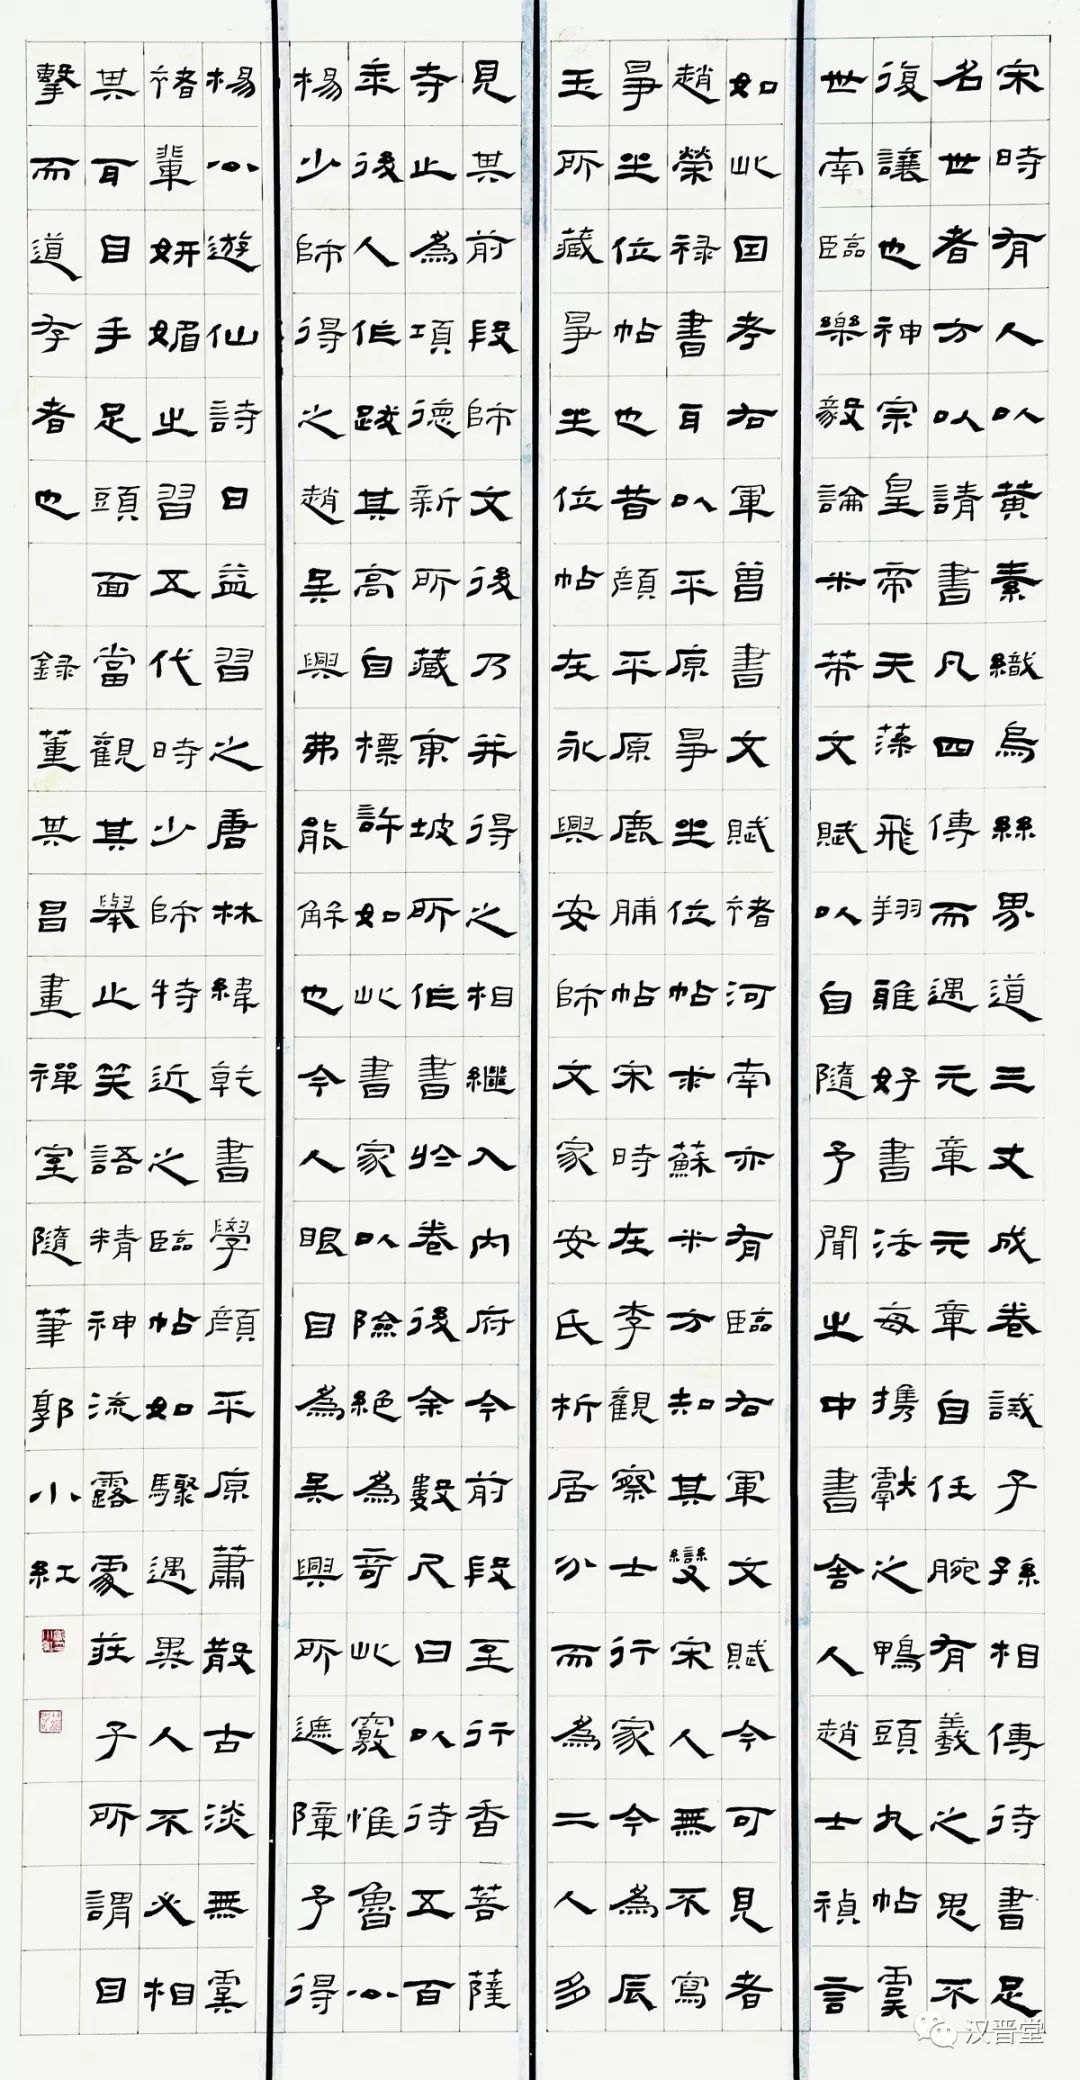 宋時有人以黄素織烏絲界道三丈成卷誡子孫相傳待書足
名世者方以請書凡四傳而遇元章元章自任腕有羲之思不
復讓也神宗皇帝天藻飛翔雅好書法每携獻之鴨頭丸帖虞
世南臨樂毅論米芾文賦以自隨予聞之中書舍人趙士禎言
如此因考右軍曽書文賦褚河南亦有臨右軍文賦今可見者
趙榮禄書耳以平原爭坐位帖求蘇米方知其變宋人無不寫
爭坐位帖也昔顔平原鹿脯帖宋時在李觀察士行家今為辰
玉所藏爭坐位帖在永興安師文家安氏析居分而為二人多
見其前段師文後乃并得之相繼入内府今前段至行香菩薩
寺止為項德新所藏東坡所作書於卷後余數尺曰以待五百
年後人作跋其高自標許如此書家以險絶為奇此竅惟魯公
楊少師得之趙吴興弗能解也今人眼目為吴興所遮障予得
楊公遊仙詩日益習之唐林緯乾書學顔平原蕭散古淡無虞
褚輩妍媚之習五代時少師特近之臨帖如驟遇異人不必相
其耳目手足頭面當觀其舉止笑語精神流露處莊子所謂目
擊而道存者也 録董其昌畫禪室隨筆郭小紅
汉晋堂